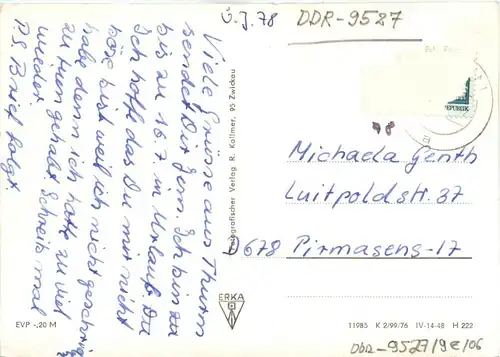 Ü. J. 78
DDR-9527
Viele Grüsse aus Thurm
sendet Dir Gern. Ich bin zu
bis zu 16.7 in Urlaub. Du
Ich hoffe das Du mir nicht
böse bist weil ich nicht geschrieb
habe denn ich hatte zu viel
zu tuen gehabt. Schreib mal
wieder
P.S. Brief folgt.
REPUBLIK
98
Michaela Genth
Luitpoldstr. 37
D 678 Pirmasens-17
Fotografischer Verlag R. Kallmer, 95 Zwickau
ERKA
EVP -,20 M
11985 K 2/99/76 IV-14-48 H 222
DDR-9527/9e/06